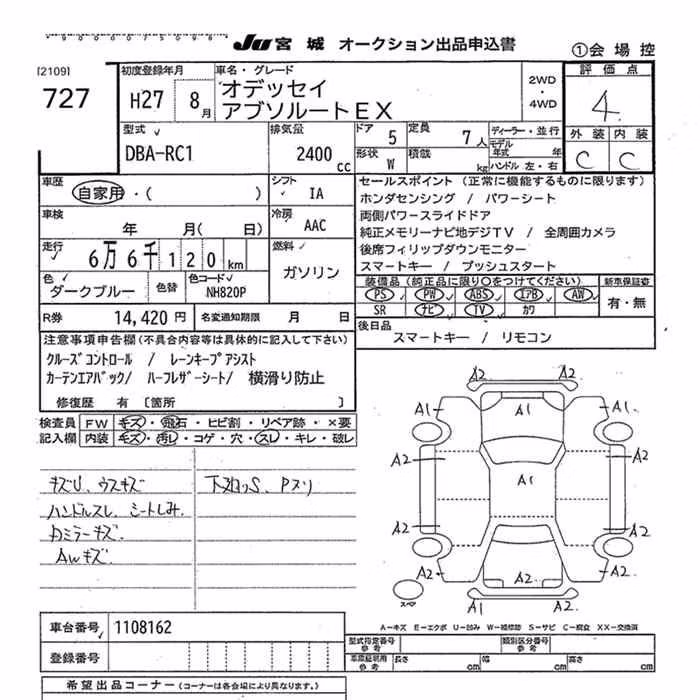 JU 宮城 オークション出品申込書 ①会場控
[2109]
727
初度登録年月
H27 8月
車名・グレード
オデッセイ
アブソルートEX
2WD
・
4WD
評価点
4
外装 内装
C C
型式
DBA-RC1
排気量
2400 CC
ドア 5
定員 7人
ディーラー・並行
モデル年式 年
形状 W
積載 kg
ハンドル 左・右
車歴
自家用・( )
シフト
IA
車検
年 月( 日)
冷房
AAC
走行
6万6千120km
燃料
ガソリン
色
ダークブルー
色替
色コード
NH820P
R券 14,420円
名変通知期限 月 日
セールスポイント (正常に機能するものに限ります)
ホンダセンシング / パワーシート
両側パワースライドドア
純正メモリーナビ地デジTV / 全周囲カメラ
後席フィリップダウンモニター
スマートキー / プッシュスタート
装備品 (純正品に限り○をつけてください)
新車保証書
PS PW ABS エアB AW
SR ナビ TV カワ
有・無
後日品
スマートキー / リモコン
注意事項申告欄(不具合内容等は具体的に記入して下さい)
クルーズコントロール / レーンキープアシスト
カーテンエアバック/ ハーフレザーシート/ 横滑り防止
修復歴 有 〔箇所 〕
検査員記入欄
FW キズ・飛石・ヒビ割・リペア跡・×要
内装 キズ・汚レ・コゲ・穴・スレ・キレ・破レ
キズU、ウスキズ
ハンドルスレ、シートしみ、
Dミラーキズ、
AWキズ
下廻りS、Pヌリ
A2 A2
A1 A1 A1
A2 A2
A1
A2 A2
A2 A2 A2
A1 A2
スペア
A−キズ E−エクボ U−凹み W−補修跡 S−サビ C−腐食 XX−交換済
車台番号
1108162
登録番号
型式指定番号
参考
類別区分番号
参考
車庫証明用
参考
長さ cm 幅 cm 高さ cm
希望出品コーナー (コーナーは各会場により異なります。)